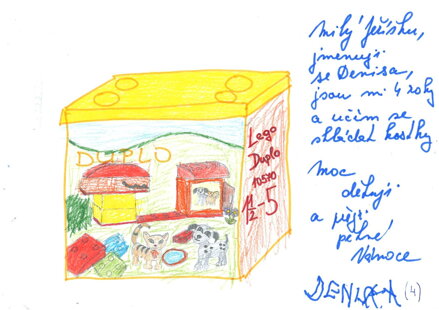 milý Ježíšku,
jmenuji
se Denisa,
jsou mi 4 roky
a učím se
skládat kostky
moc
děkuji
a přeji
pěkné
Vánoce
DENISA (4)
DUPLO
Lego
Duplo
10570
1 1/2-5